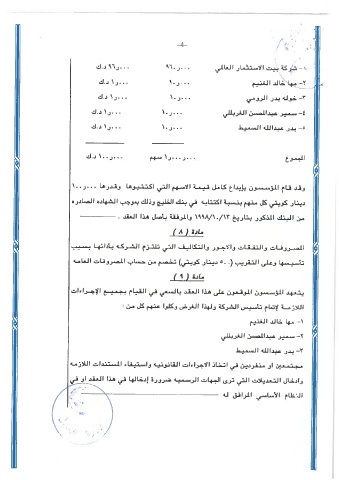 -4-
١- شركة بيت الاستثمار العالمي ٩٦٠ر٠٠٠ ٩٦ر٠٠٠ د.ك
٢- مها خالد الغنيم ١٠ر٠٠٠ ١ر٠٠٠ د.ك
٣- خوله بدر الرومي ١٠ر٠٠٠ ١ر٠٠٠ د.ك
٤- سمير عبدالمحسن الغربللي ١٠ر٠٠٠ ١ر٠٠٠ د.ك
٥- بدر عبدالله السميط ١٠ر٠٠٠ ١ر٠٠٠ د.ك
المجموع ١ر٠٠٠ر٠٠٠ سهم ١٠٠ر٠٠٠ د.ك
وقد قام المؤسسون بإيداع كامل قيمة الاسهم التي اكتتبوها وقدرها ١٠٠ر٠٠٠
دينار كويتي كل منهم بنسبة اكتتابه في بنك الخليج وذلك بموجب الشهاده الصادره
من البنك المذكور بتاريخ ١٩٩٨/١٠/١٣ والمرفقة بأصل هذا العقد .
مادة ( ٨ )
المصروفات والنفقات والاجور والتكاليف التي تلتزم الشركه بأدائها بسبب
تأسيسها وعلى التقريب (٥٠٠ دينار كويتي) تخصم من حساب المصروفات العامه
مادة ( ٩ )
يتعهد المؤسسون الموقعون على هذا العقد بالسعي في القيام بجميع الإجراءات
اللازمة لإتمام تأسيس الشركة ولهذا الغرض وكلوا عنهم كل من :
١- مها خالد الغنيم
٢- سمير عبدالمحسن الغربللي
٣- بدر عبدالله السميط
مجتمعين او منفردين في اتخاذ الاجراءات القانونيه واستيفاء المستندات اللازمه
وادخال التعديلات التي ترى الجهات الرسميه ضرورة إدخالها في هذا العقد او في
النظام الأساسي المرافق له